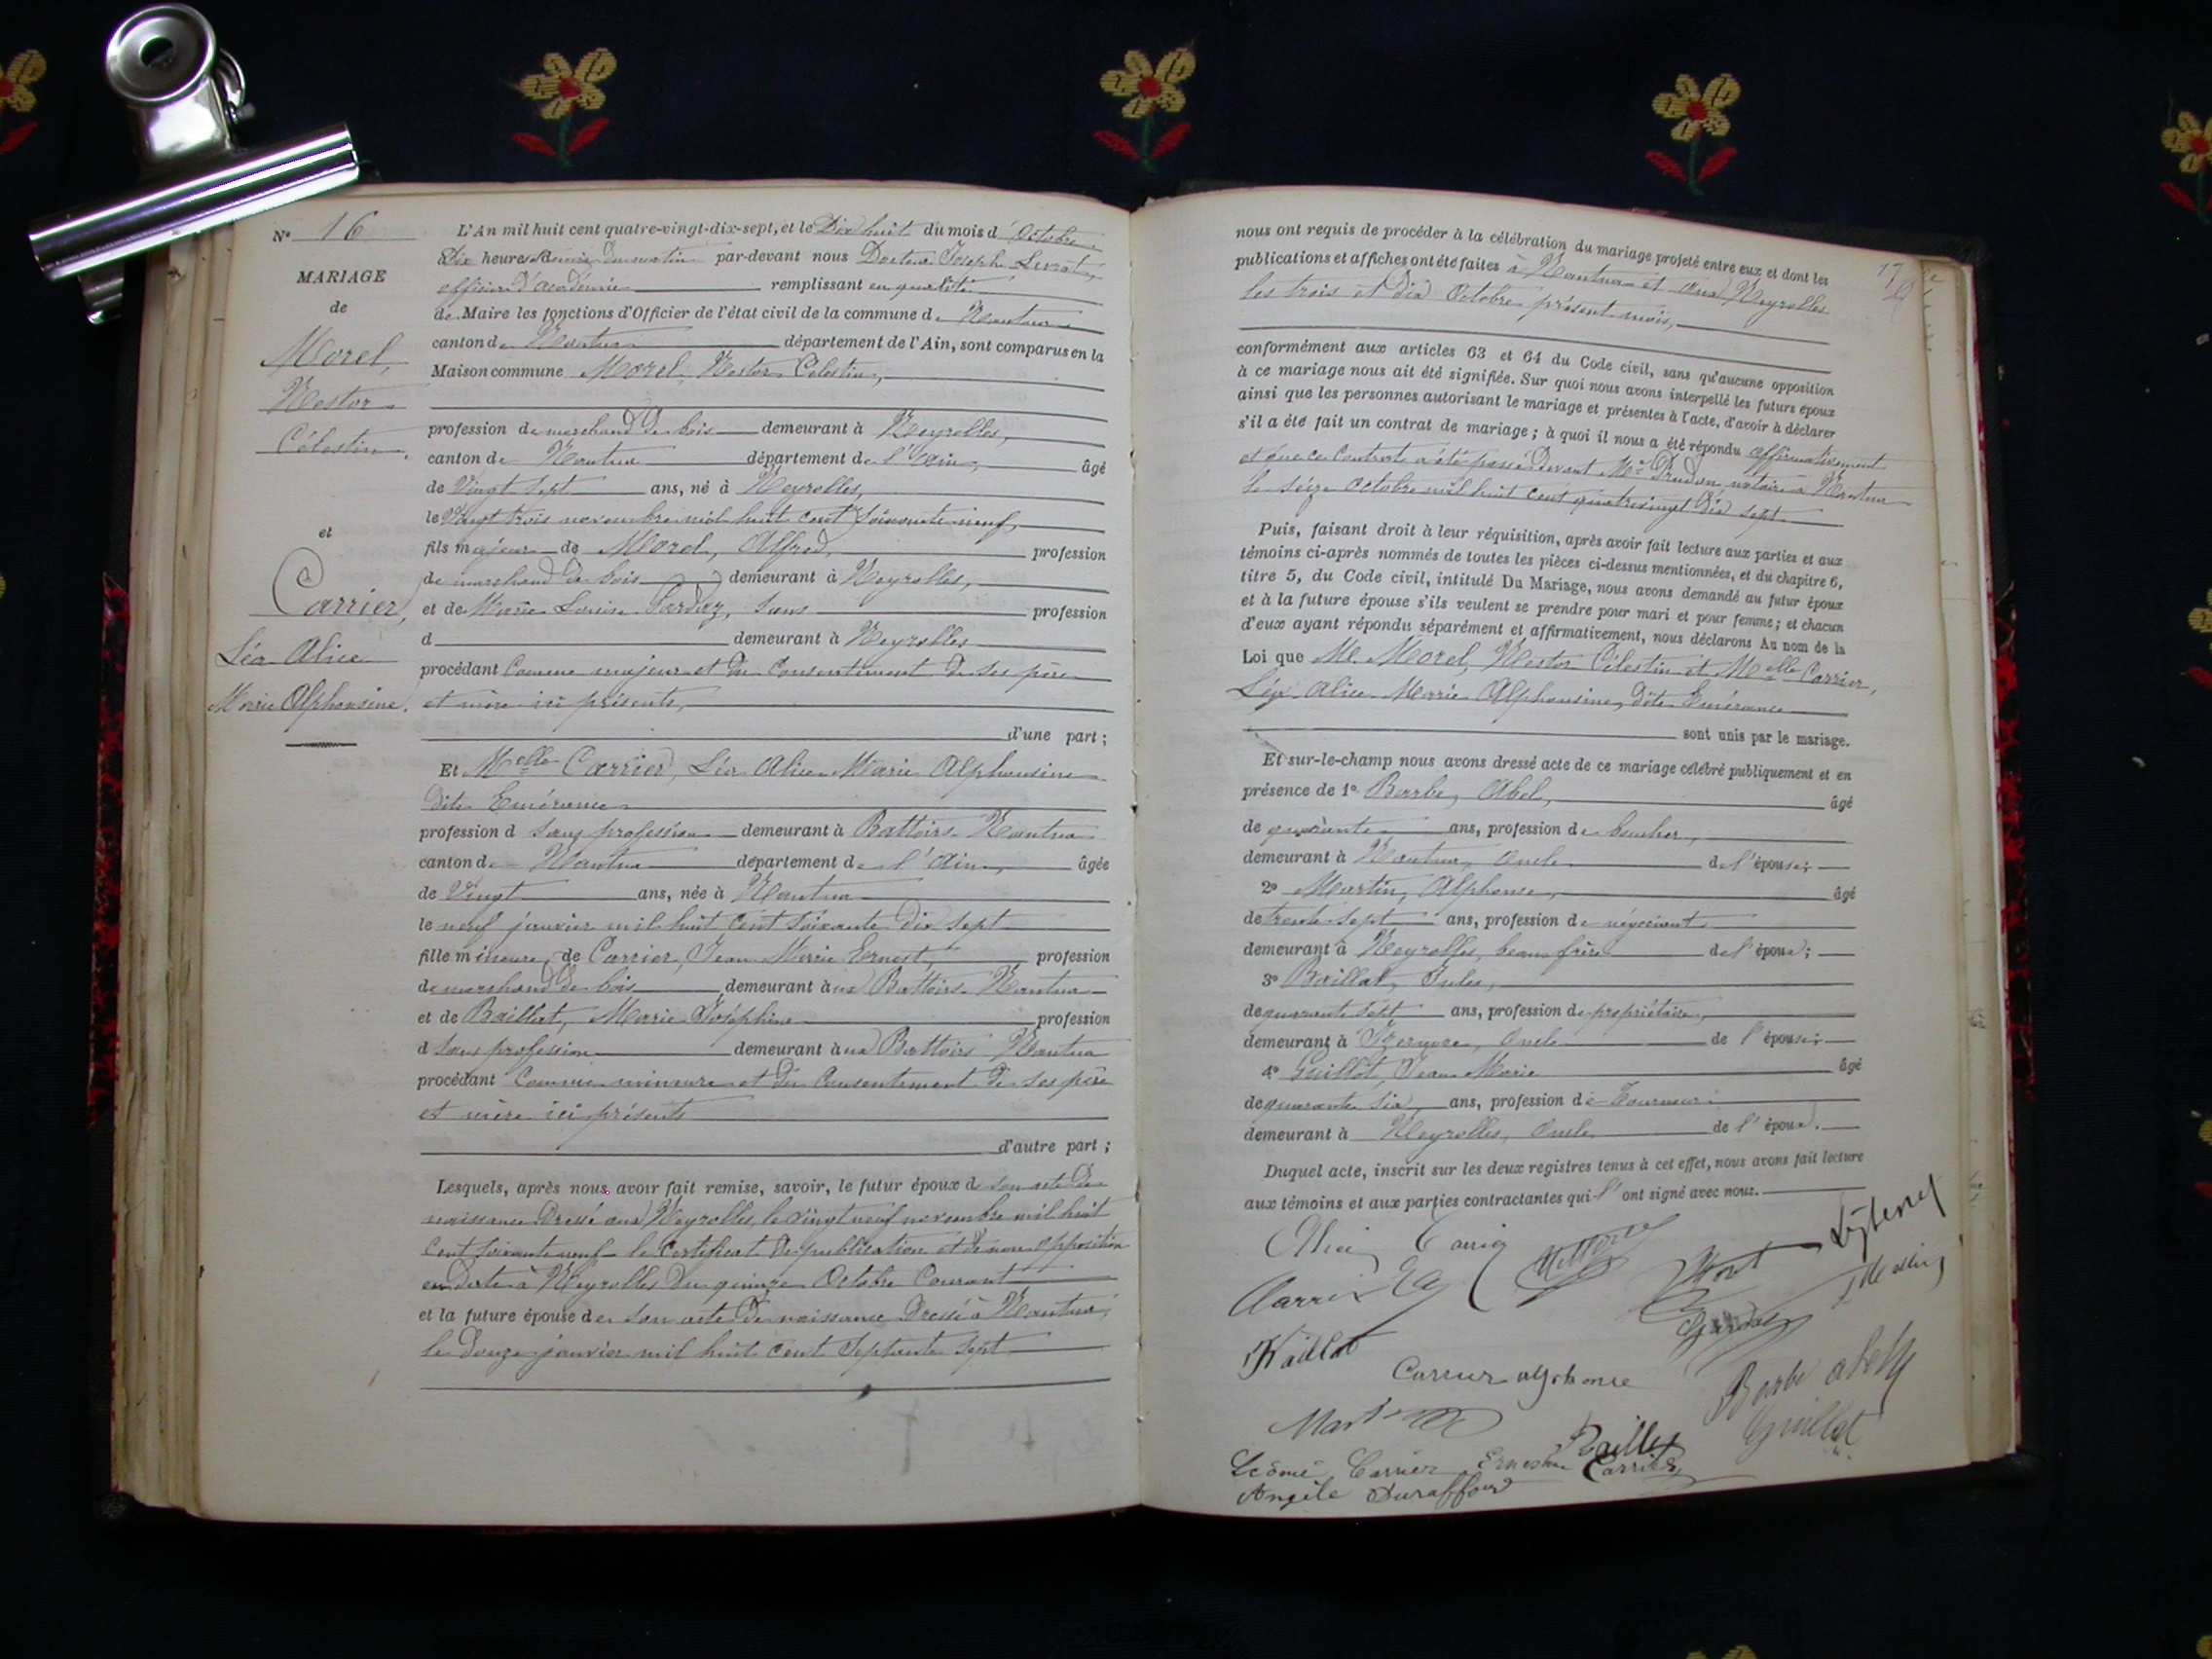 N° 16
MARIAGE
de
Morel,
Nestor
Célestin.
et
Carrier,
Léa Alice
Marie Alphonsine.
L'An mil huit cent quatre-vingt-dix-sept, et le Dix huit du mois d'Octobre
à Dix heures du matin par-devant nous Docteur Joseph Levrat,
officier d'académie remplissant en qualité
de Maire les fonctions d'Officier de l'état civil de la commune de Nantua
canton de Nantua département de l'Ain, sont comparus en la
Maison commune Morel, Nestor Célestin,
profession de marchand de bois demeurant à Neyrolles,
canton de Nantua département de l'Ain, âgé
de Vingt sept ans, né à Neyrolles,
le Vingt trois novembre mil huit cent soixante neuf,
fils majeur de Morel, Alfred, profession
de marchand de bois demeurant à Neyrolles,
et de Marie Louise sans profession
d demeurant à Neyrolles
procédant Comme majeur et du Consentement de ses père
et mère ici présents,
d'une part ;
Et Melle Carrier, Léa Alice Marie Alphonsine
dite Emérance
profession d sans profession demeurant à Battoirs Nantua
canton de Nantua département de l'Ain, âgée
de Vingt ans, née à Nantua
le neuf janvier mil huit cent soixante dix sept
fille mineure de Carrier, Jean Marie Ernest, profession
de marchand de bois demeurant aux Battoirs Nantua
et de Baillat, Marie Joséphine profession
d sans profession demeurant aux Battoirs Nantua
procédant Comme mineure et du Consentement de ses père
et mère ici présents
d'autre part ;
Lesquels, après nous avoir fait remise, savoir, le futur époux de son acte de
naissance dressé aux Neyrolles, le vingt neuf novembre mil huit
cent soixante neuf le Certificat de publication et de non opposition
en date à Neyrolles du quinze Octobre Courant
et la future épouse de son acte de naissance dressé à Nantua,
le Douze janvier mil huit cent septante sept
17
nous ont requis de procéder à la célébration du mariage projeté entre eux et dont les
publications et affiches ont été faites à Nantua et aux Neyrolles
les trois et dix Octobre présent mois,
conformément aux articles 63 et 64 du Code civil, sans qu'aucune opposition
à ce mariage nous ait été signifiée. Sur quoi nous avons interpellé les futurs époux
ainsi que les personnes autorisant le mariage et présentes à l'acte, d'avoir à déclarer
s'il a été fait un contrat de mariage ; à quoi il nous a été répondu affirmativement
et que ce Contrat a été passé devant Me Prudon, notaire à Nantua
le seize Octobre mil huit cent quatrevingt dix sept
Puis, faisant droit à leur réquisition, après avoir fait lecture aux parties et aux
témoins ci-après nommés de toutes les pièces ci-dessus mentionnées, et du chapitre 6,
titre 5, du Code civil, intitulé Du Mariage, nous avons demandé au futur époux
et à la future épouse s'ils veulent se prendre pour mari et pour femme ; et chacun
d'eux ayant répondu séparément et affirmativement, nous déclarons Au nom de la
Loi que M. Morel, Nestor Célestin et Melle Carrier,
Léa Alice Marie Alphonsine, dite Emérance
sont unis par le mariage.
Et sur-le-champ nous avons dressé acte de ce mariage célébré publiquement et en
présence de 1° Barbe, Abel, âgé
de quarante ans, profession de boucher,
demeurant à Nantua, Oncle de l'épouse ;
2° Martin, Alphonse, âgé
de trente sept ans, profession de négociant
demeurant à Neyrolles, beau frère de l'époux ;
3° Baillat, Jules,
de quarante sept ans, profession de propriétaire,
demeurant à Izernore, Oncle de l'épouse ;
4° Guillot, Jean Marie âgé
de quarante six ans, profession de Tourneur
demeurant à Neyrolles, Oncle de l'époux.
Duquel acte, inscrit sur les deux registres tenus à cet effet, nous avons fait lecture
aux témoins et aux parties contractantes qui l'ont signé avec nous.
Alice Carrier
Baillat
Carrier alphonse
Barbe abel
Guillot
Martin
Carrier Ernestine Carrier
Angèle Duraffour